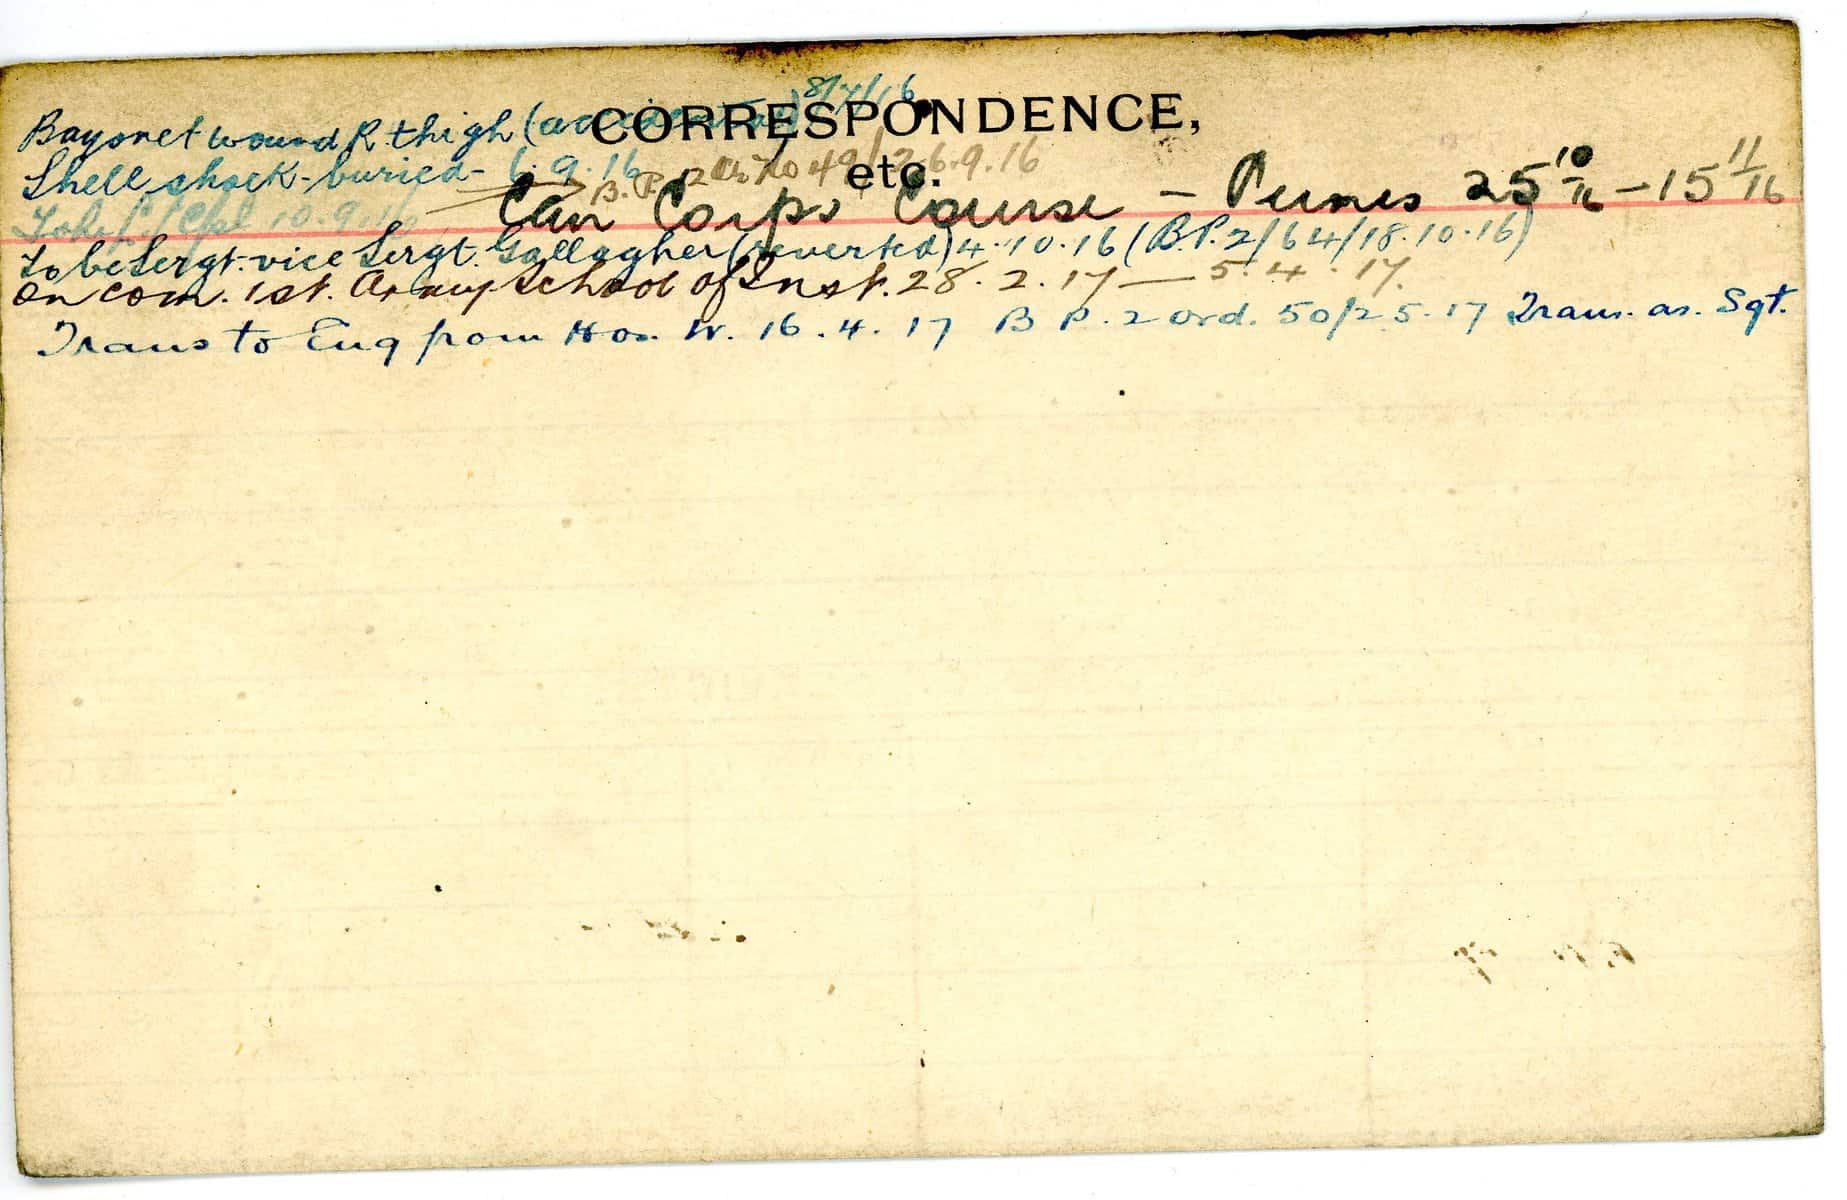 CORRESPONDENCE,
etc.
Bayonet wound R. thigh (accidental) 8/7/16
Shell shock - buried - 6.9.16
B.P. 2 Or No 49/26.9.16
To be L/Cpl 10.9.16
Can Corps Course - Pernes 25 10/16 - 15 11/16
To be Sergt. vice Sergt. Gallagher (reverted) 4.10.16 (B.P.2/64/18.10.16)
On com. 1st. Army School of Inst. 28.2.17 — 5.4.17.
Trans to Eng from Hos. W. 16.4.17 B P. 2 Ord. 50/25.17 Trans. as. Sgt.